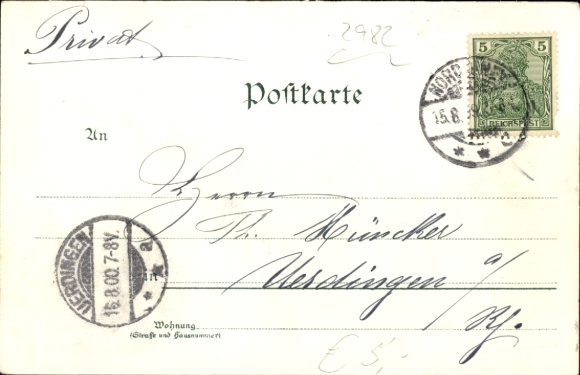 Privat
2982
5 5
REICHSPOST
15.8.
Postkarte
An
Herrn
Th. Müncker
Uerdingen a/
Rh.
UERDINGEN
16.8.00.7-8V.
a
in
Wohnung
(Straße und Hausnummer)
€ 5,-